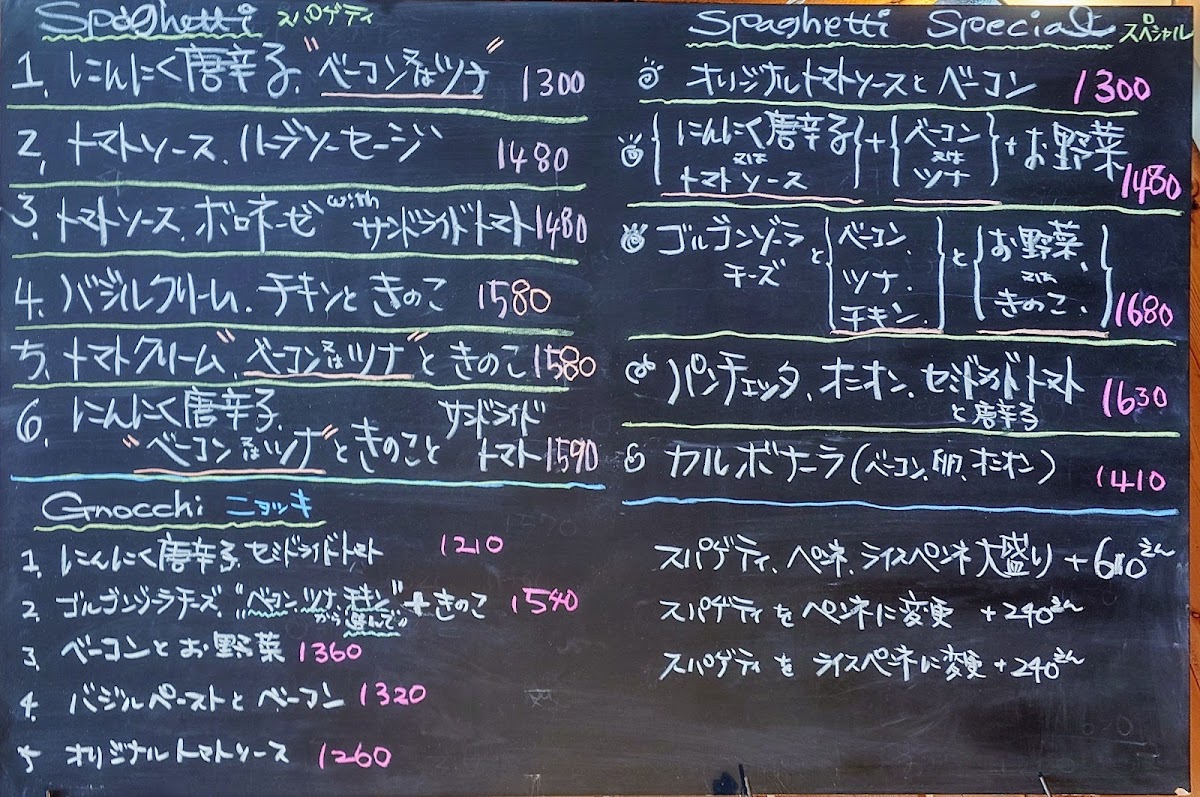 Spaghetti スパゲティ
1. にんにく唐辛子、"ベーコン又はツナ" 1300
2. トマトソース、ハーブソーセージ 1480
3. トマトソース、ボロネーゼ with サンドライドトマト 1480
4. バジルクリーム、チキンときのこ 1580
5. トマトクリーム、"ベーコン又はツナ"ときのこ 1580
6. にんにく唐辛子、サンドライド
"ベーコン又はツナ"ときのこと トマト 1590
Gnocchi ニョッキ
1. にんにく唐辛子、セミドライドトマト 1210
2. ゴルゴンゾーラチーズ、"ベーコン、ツナ、チキン"+きのこ 1540
から選んで。
3. ベーコンとお野菜 1360
4. バジルペーストとベーコン 1320
5 オリジナルトマトソース 1260
Spaghetti Special スペシャル
オリジナルトマトソースとベーコン 1300
{にんにく唐辛子 又は トマトソース}+{ベーコン 又は ツナ}+お野菜 1480
ゴルゴンゾーラチーズと{ベーコン、ツナ、チキン、}と{お野菜、又は きのこ、} 1680
パンチェッタ、オニオン、セミドライドトマト
と唐辛子 1630
カルボナーラ(ベーコン、卵、オニオン) 1410
スパゲティ、ペンネ、ライスペンネ大盛り +
スパゲティをペンネに変更 +240えん
スパゲティをライスペンネに変更 +240えん